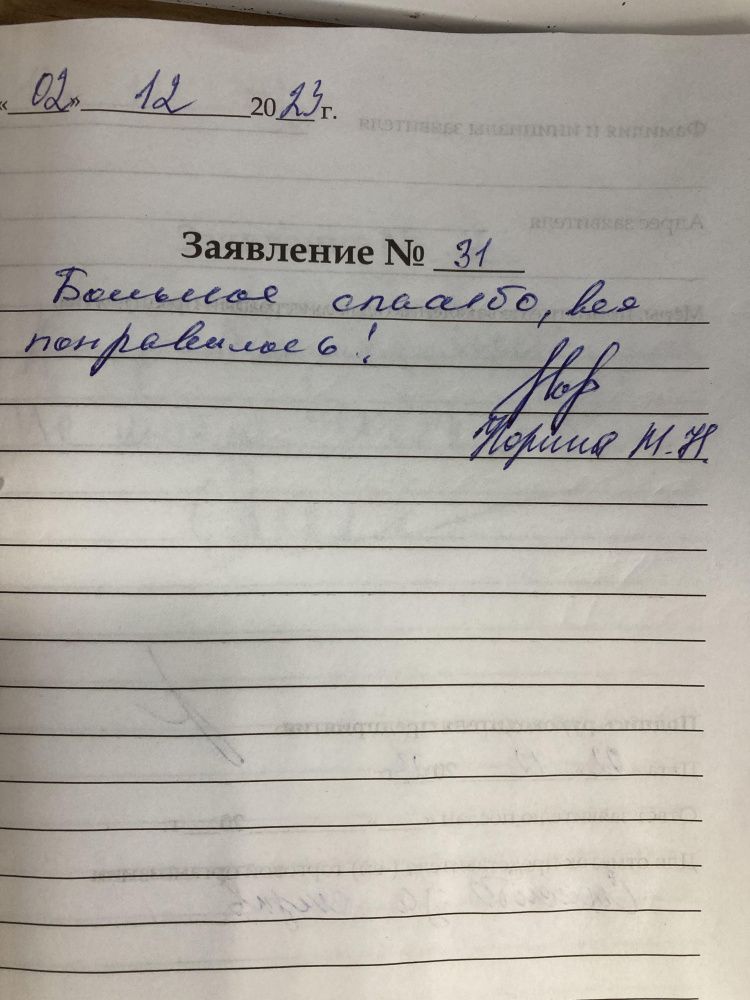 «02» 12 2023 г.
Заявление № 31
Большое спасибо, все
понравилось!
Норина М.Н.